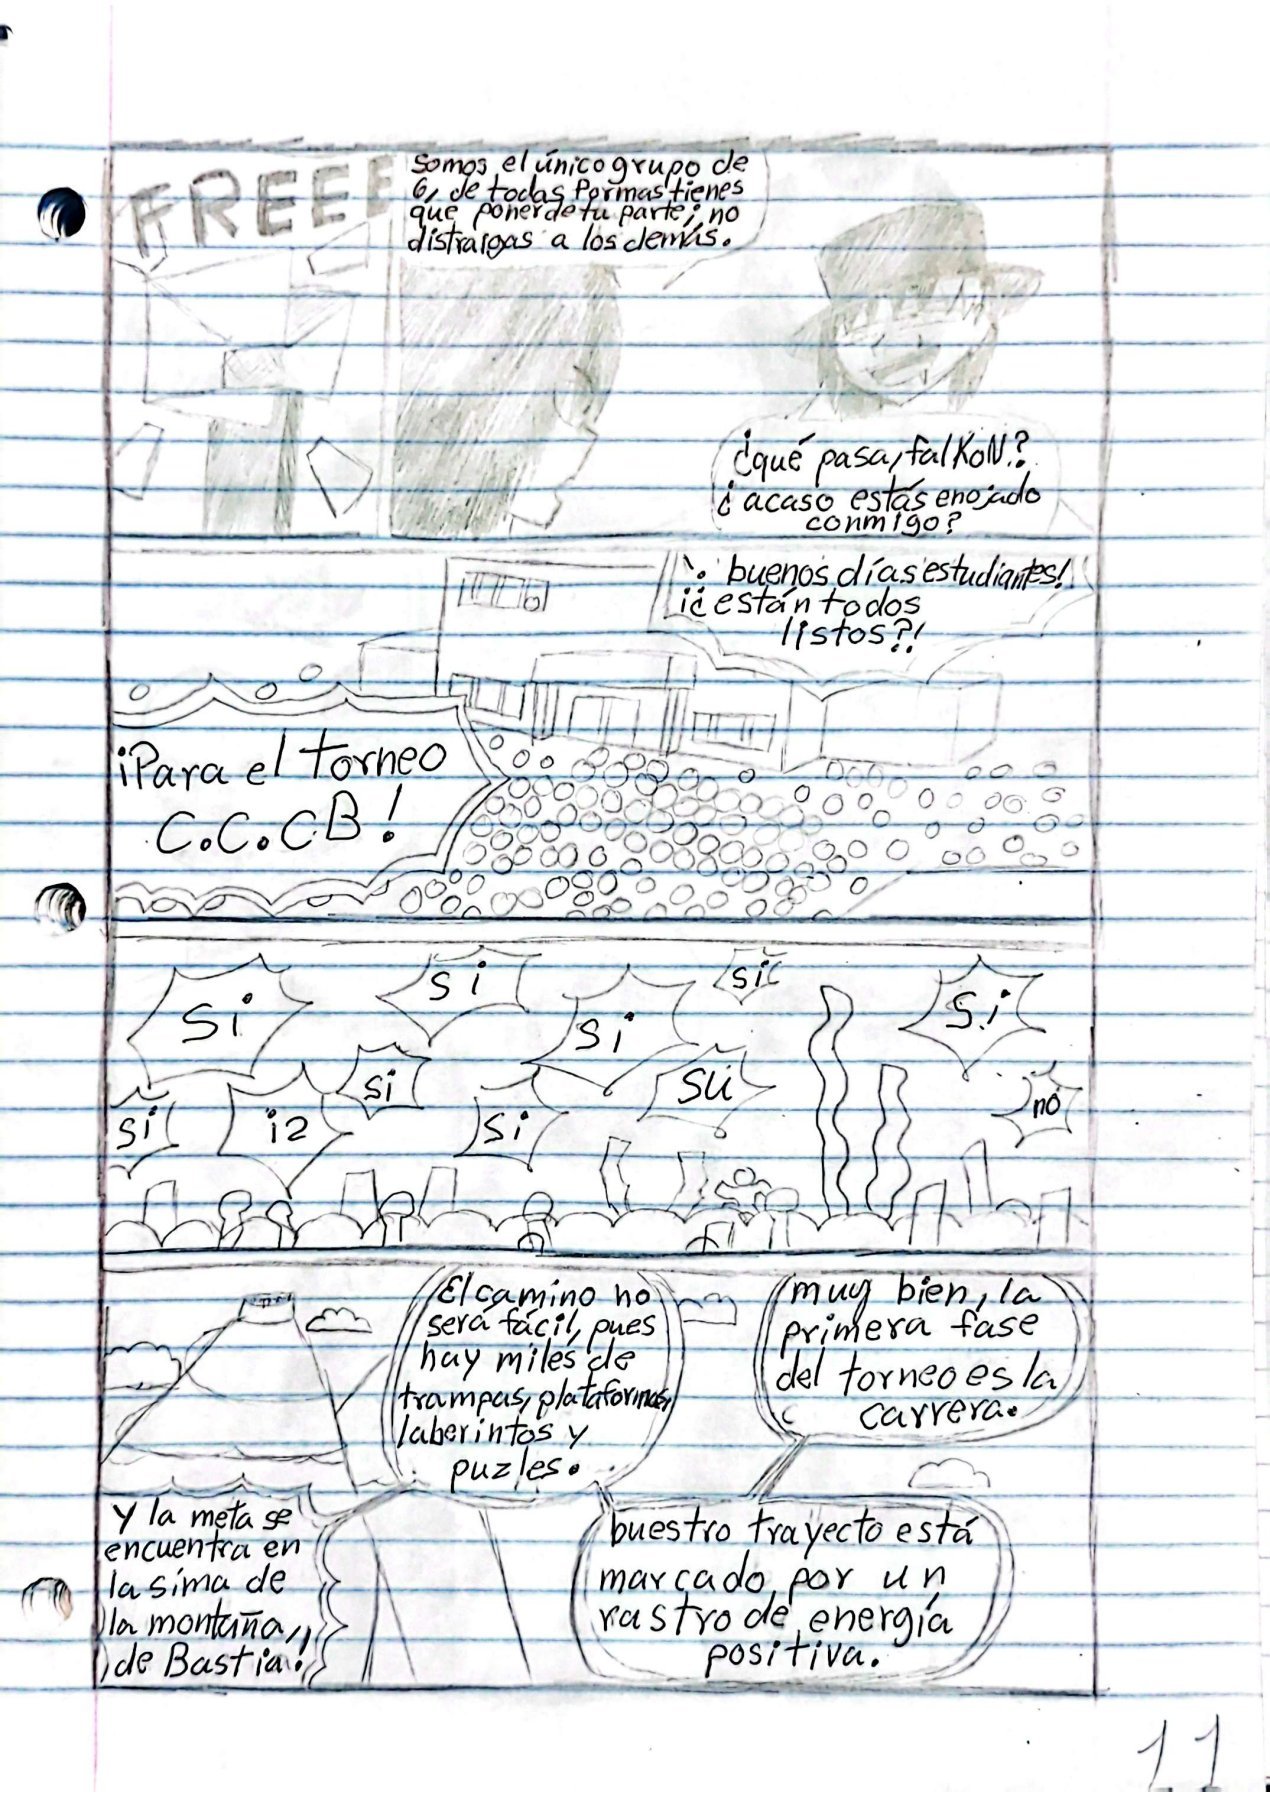 FREEE
somos el único grupo de
6, de todas formas tienes
que poner de tu parte; no
distraigas a los demás.
¿qué pasa, falKoN?
¿acaso estás enojado
conmigo?
¡buenos días estudiantes!
¡¿están todos
listos?!
¡Para el torneo
C.C.CB!
si
si
si
si
si
si
i2
si
si
SU
no
muy bien, la
primera fase
del torneo es la
carrera.
El camino no
será fácil, pues
hay miles de
trampas, plataformas,
laberintos y
puzles.
buestro trayecto está
marcado por un
rastro de energía
positiva.
Y la meta se
encuentra en
la sima de
la montaña,
de Bastia!
11